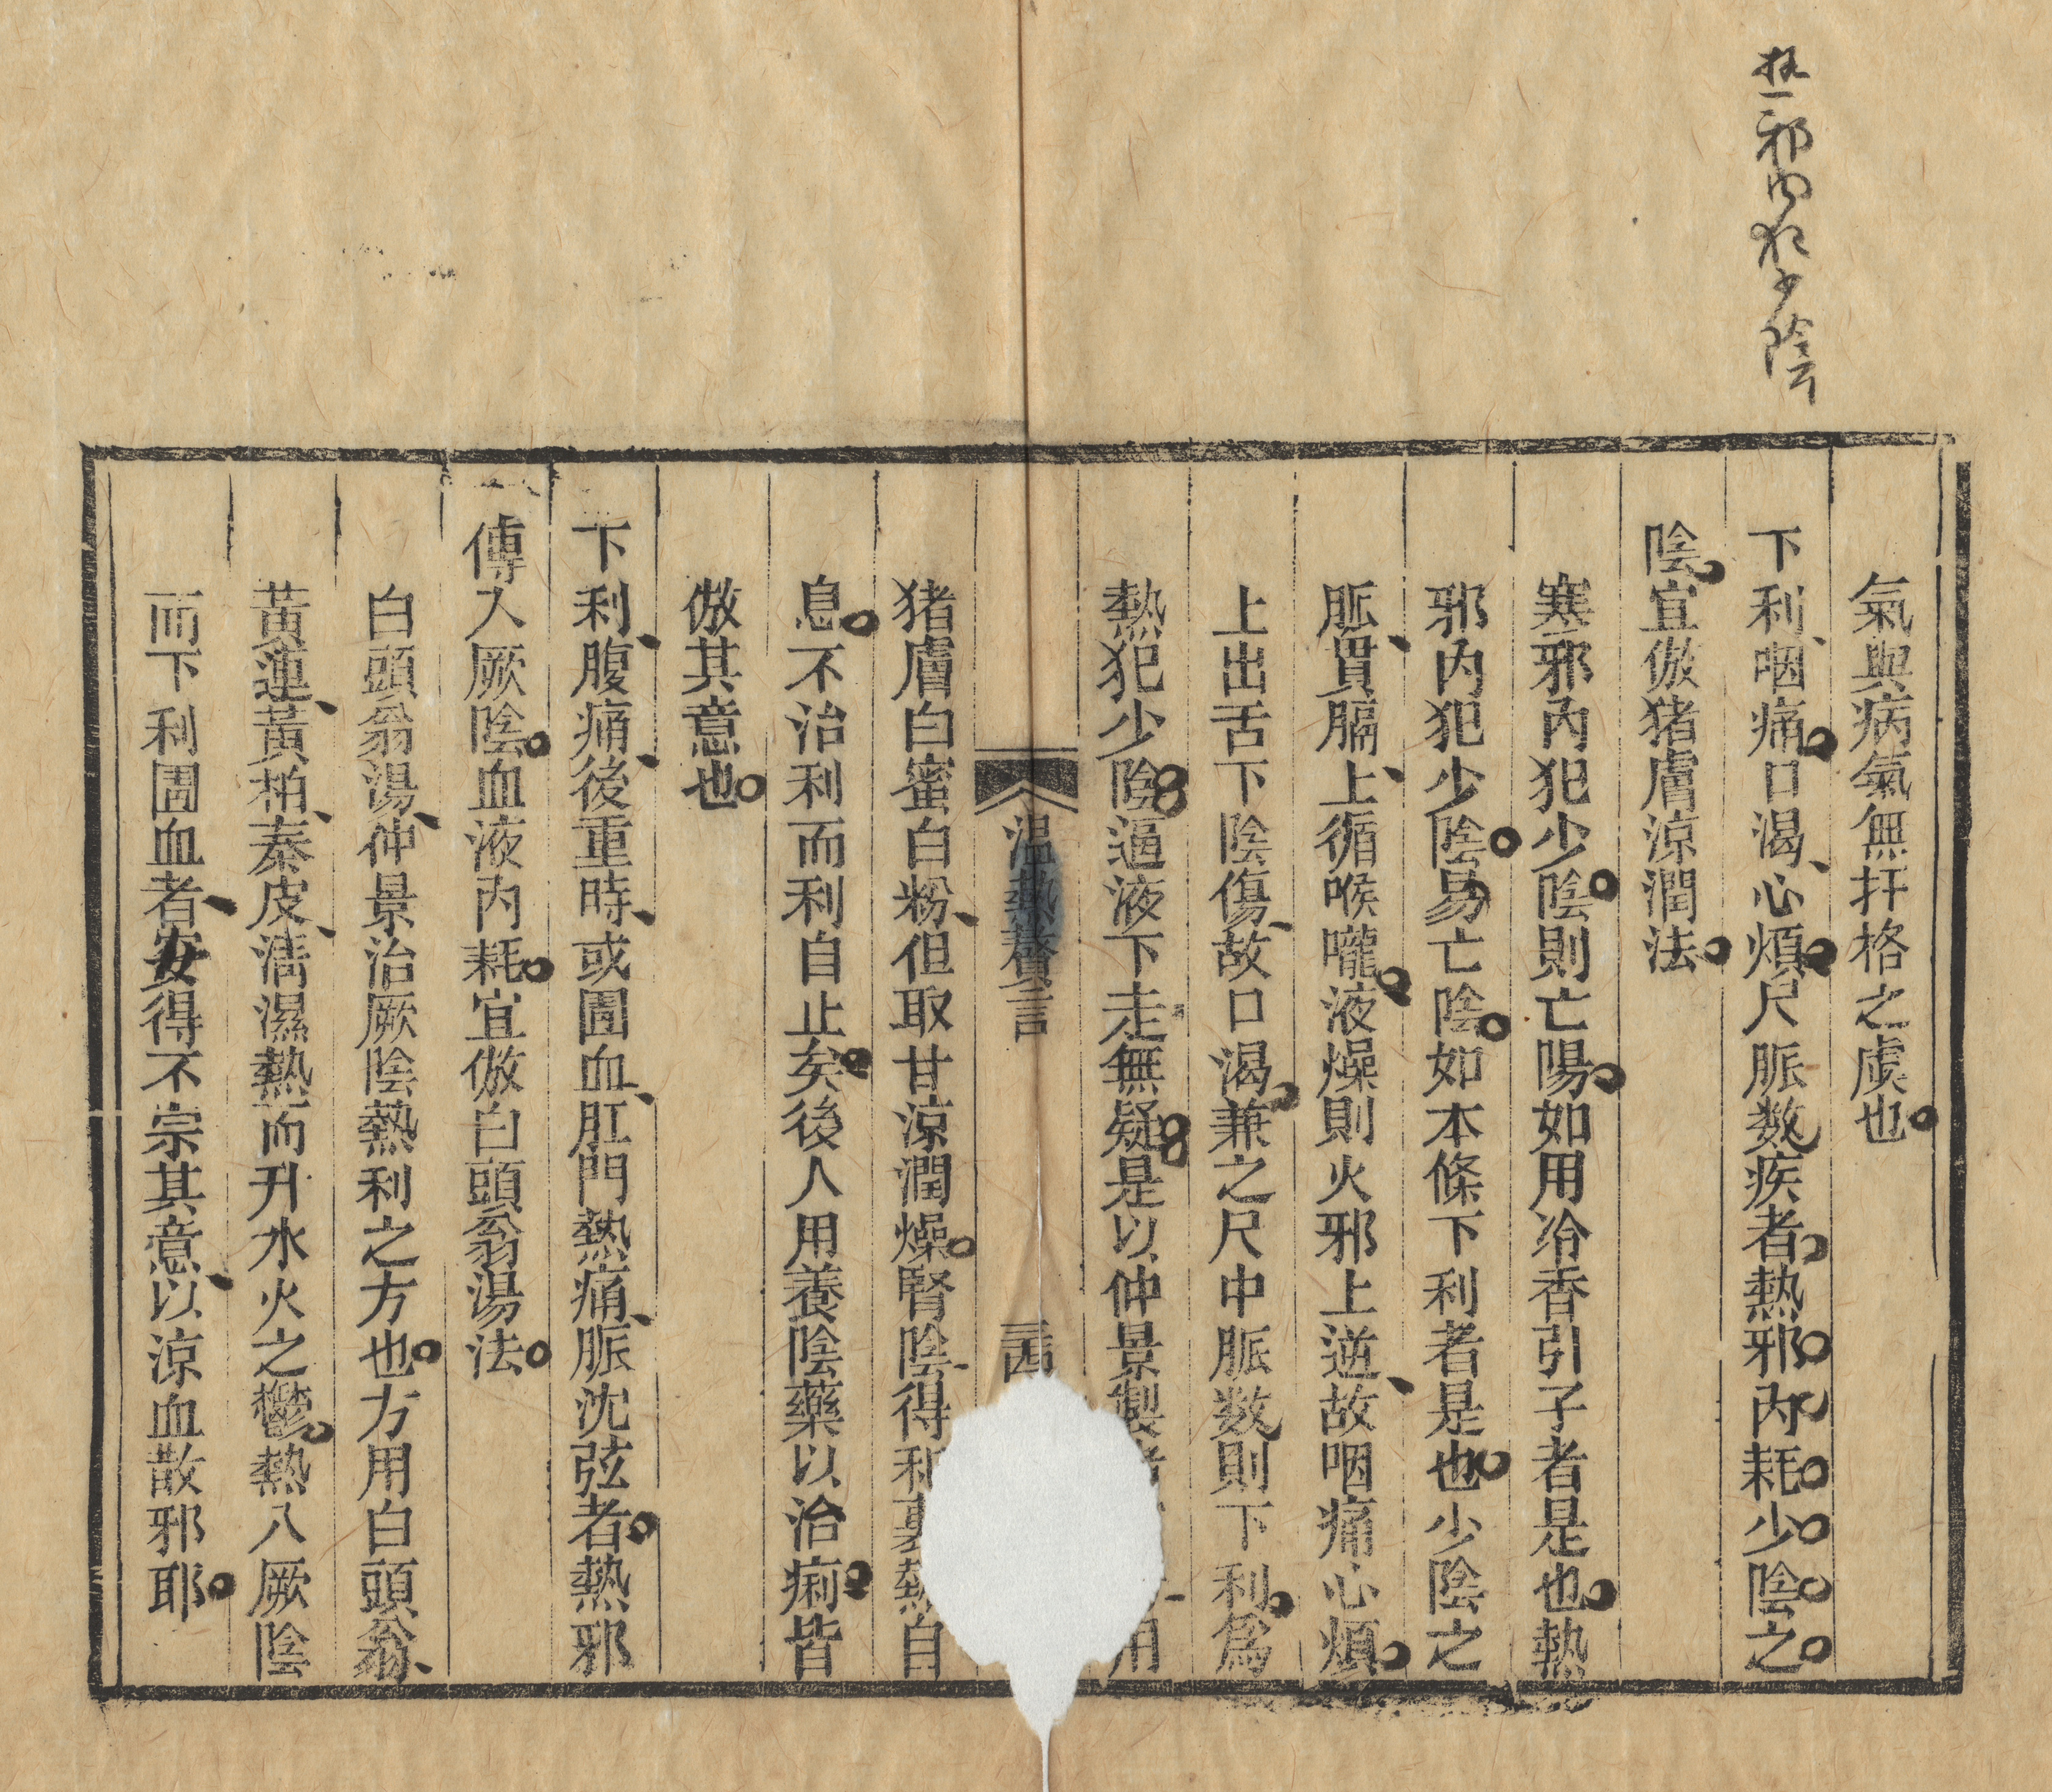 热邪內犯少陰
氣與病氣無扞格之虞也
下利咽痛口渴心煩尺脈数疾者熱邪內耗少陰之
陰宜倣猪膚涼潤法
寒邪內犯少陰則亡陽如用冷香引子者是也熱
邪內犯少陰易亡陰如本條下利者是也少陰之
脈貫膈上循喉嚨液燥則火邪上逆故咽痛心煩
上出舌下陰傷故口渴兼之尺中脈数則下利爲
熱犯少陰逼液下走無疑是以仲景製用
温熱贅言
猪膚白蜜白粉但取甘涼潤燥腎陰得熱自
息不治利而利自止矣後人用養陰藥以治痢皆
倣其意也
下利腹痛後重時或圊血肛門熱痛脈沈弦者熱邪
傳入厥陰血液內耗宜倣白頭翁湯法
白頭翁湯仲景治厥陰熱利之方也方用白頭翁
黃連黃柏秦皮淸濕熱而升水火之鬱熱入厥陰
而下利圊血者安得不宗其意以涼血散邪耶